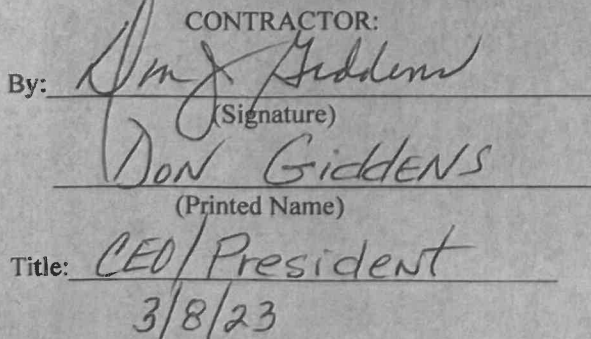 CONTRACTOR:
By: Don J Giddens
(Signature)
Don Giddens
(Printed Name)
Title: CEO/President
3/8/23